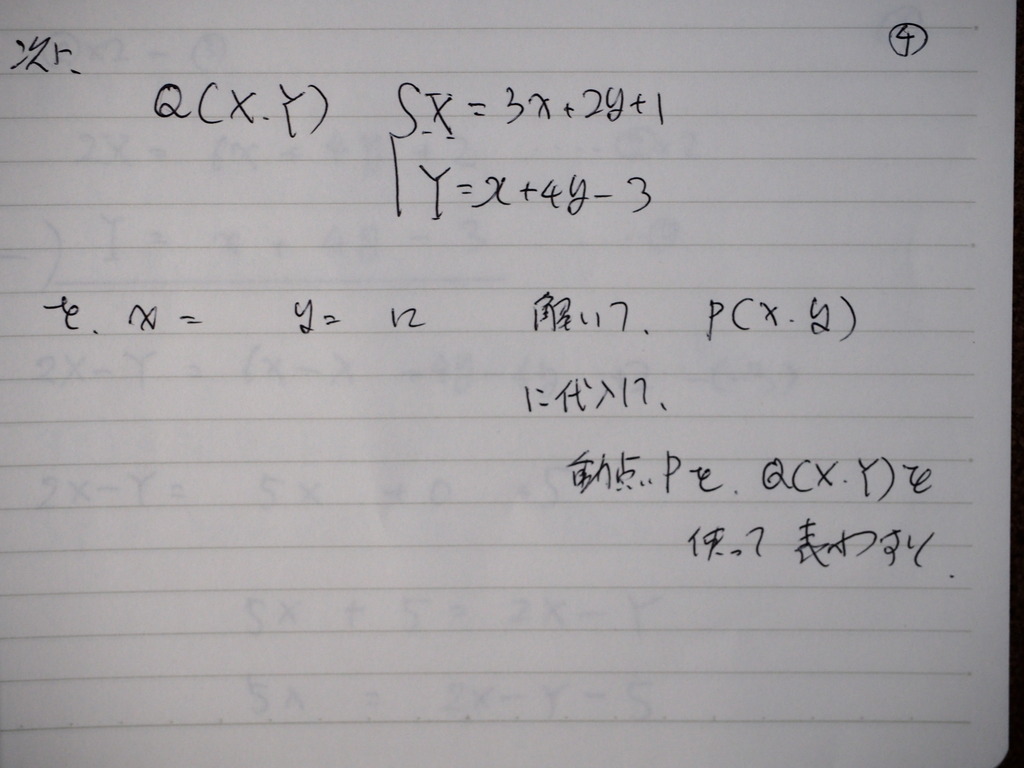 ④
次に、
Q(X.Y) { X = 3x+2y+1
Y = x+4y-3
を、x = y = に 解いて、P(x.y)
に代入して、
動点Pを、Q(X.Y)を
使って 表わすし.